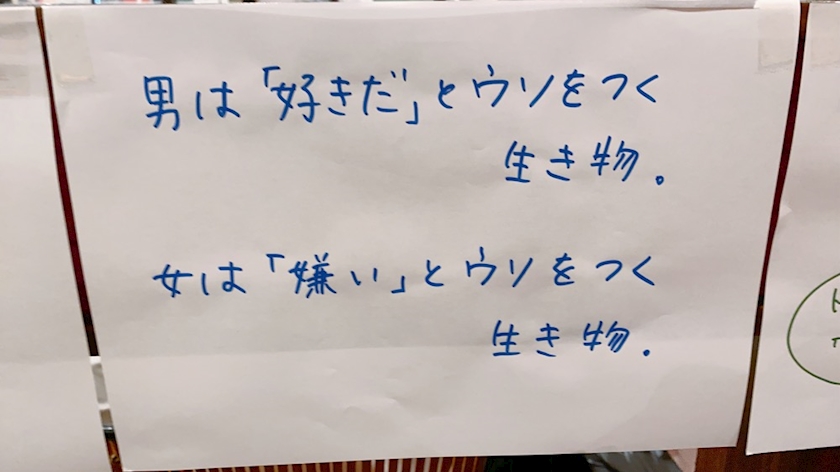 男は「好きだ」とウソをつく
生き物。
女は「嫌い」とウソをつく
生き物。